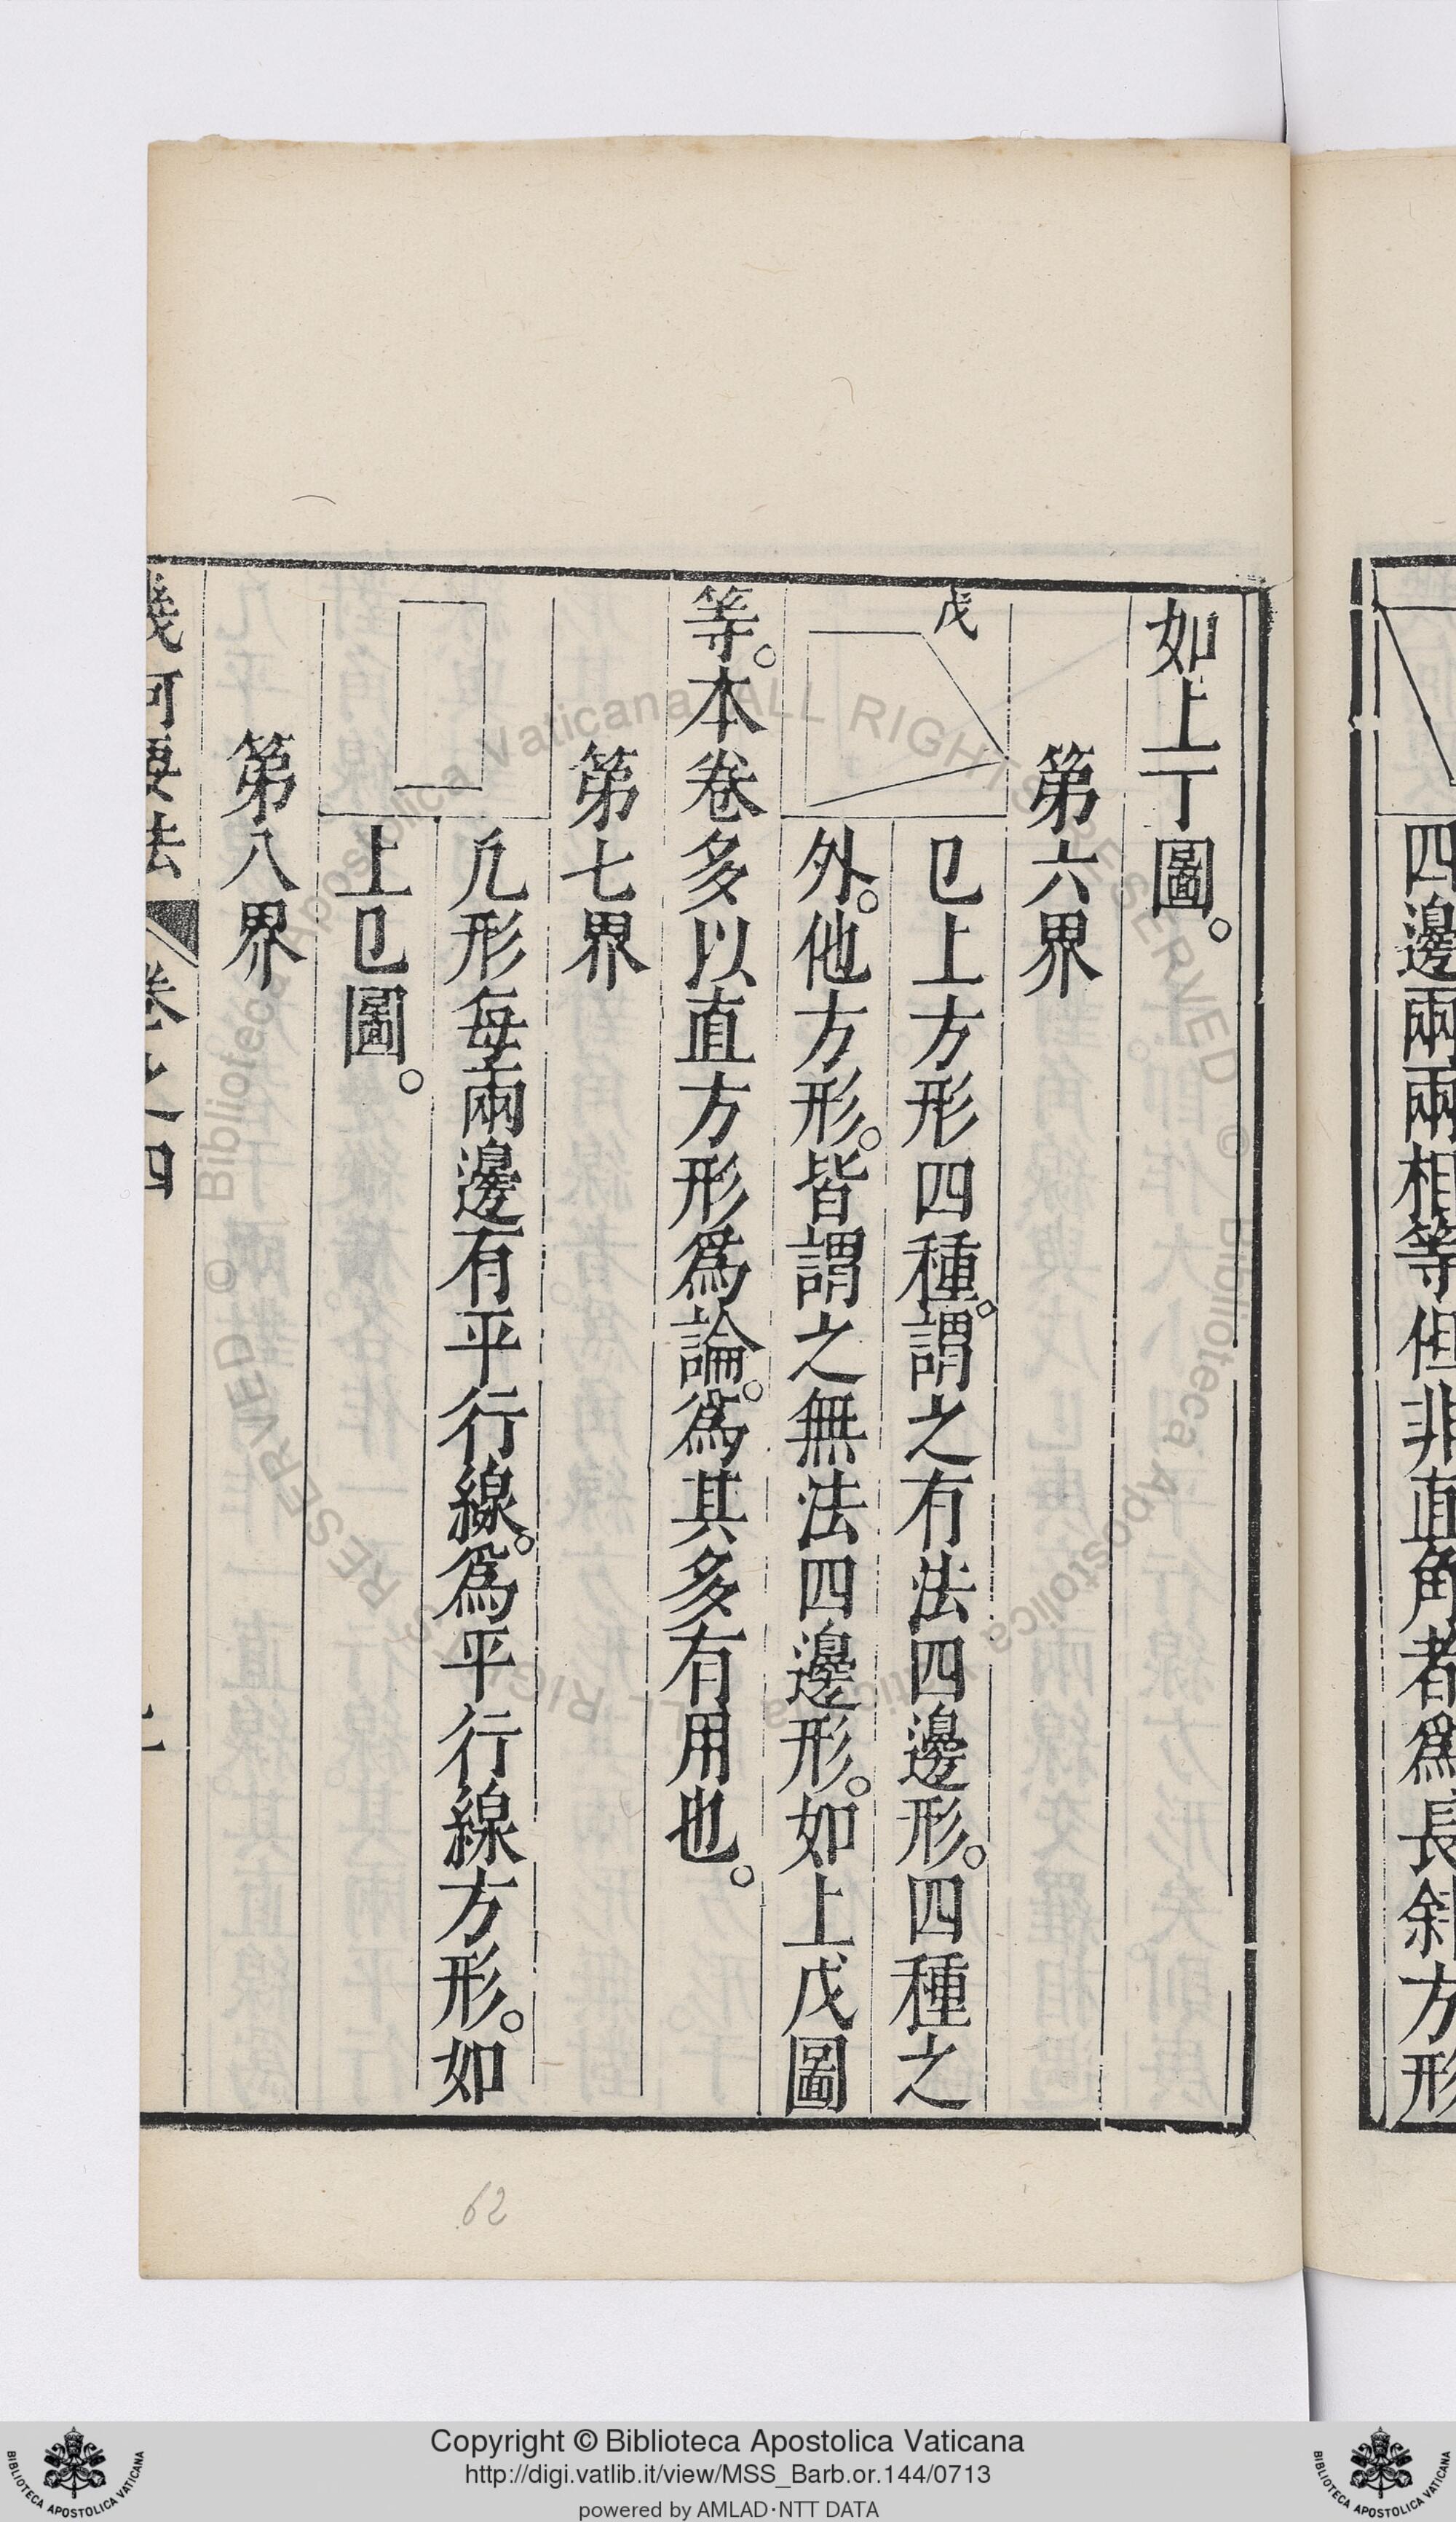 四邊兩兩相等但非直角者爲長斜方形
如上丁圖。
第六界
戊
已上方形四種。謂之有法四邊形。四種之
外。他方形。皆謂之無法四邊形。如上戊圖
等。本卷多以直方形爲論。爲其多有用也。
第七界
凢形每兩邊有平行線。爲平行線方形。如
上已圖。
第八界
幾何要法 卷之四
62
Copyright © Biblioteca Apostolica Vaticana
http://digi.vatlib.it/view/MSS_Barb.or.144/0713
powered by AMLAD·NTT DATA
BIBLIOTECA APOSTOLICA VATICANA
BIBLIOTECA APOSTOLICA VATICANA
© Biblioteca Apostolica Vaticana ALL RIGHTS RESERVED
© Biblioteca Apostolica Vaticana ALL RIGHTS RESERVED